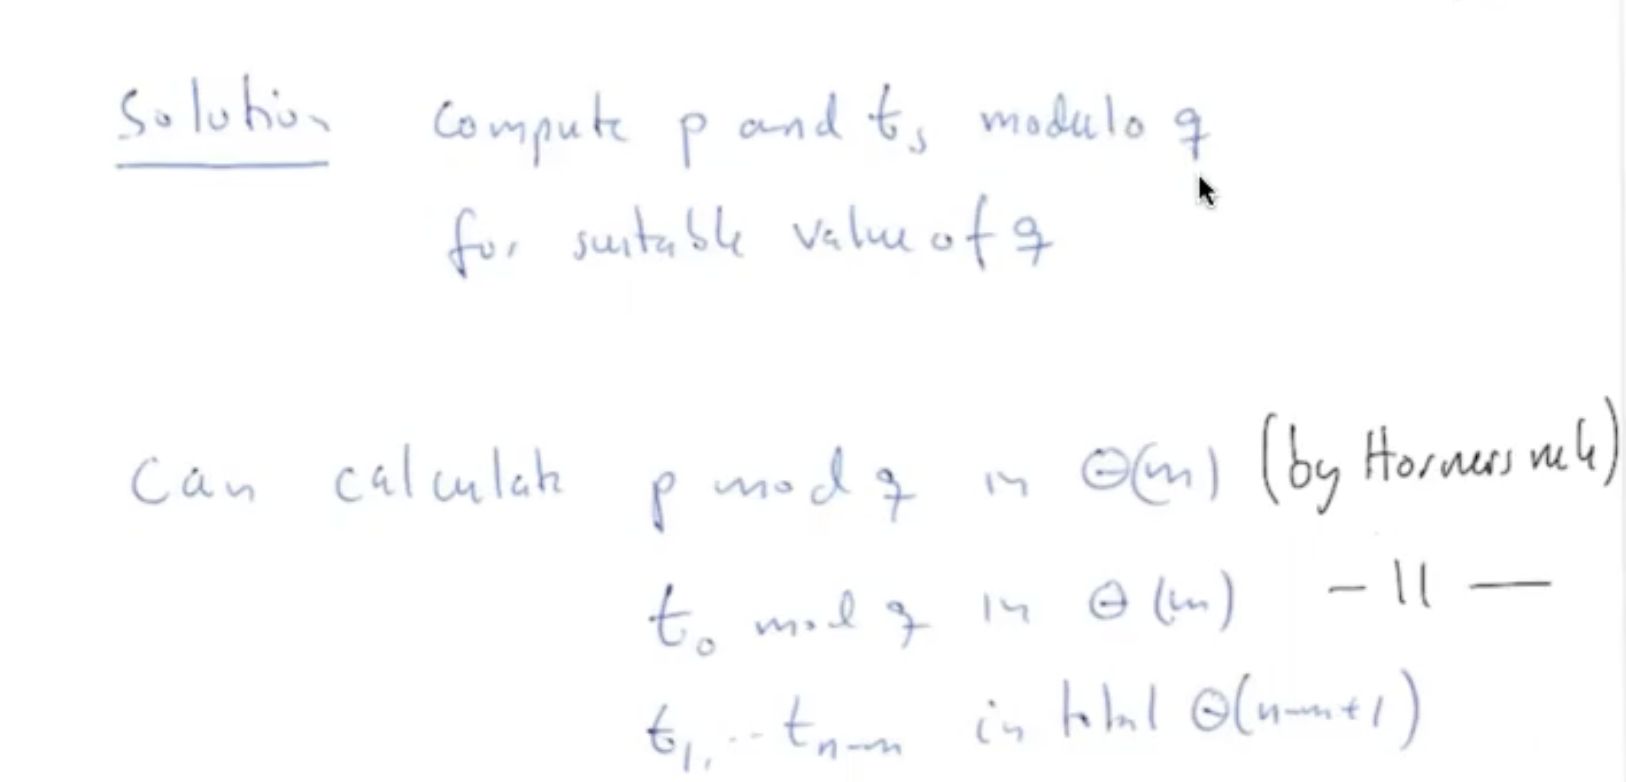 Solution compute p and ts modulo q
for suitable value of q
Can calculate p mod q in Θ(m) (by Horners rule)
t0 mod q in Θ(m) – 11 —
t1, .. tn-m in total Θ(n-m+1)